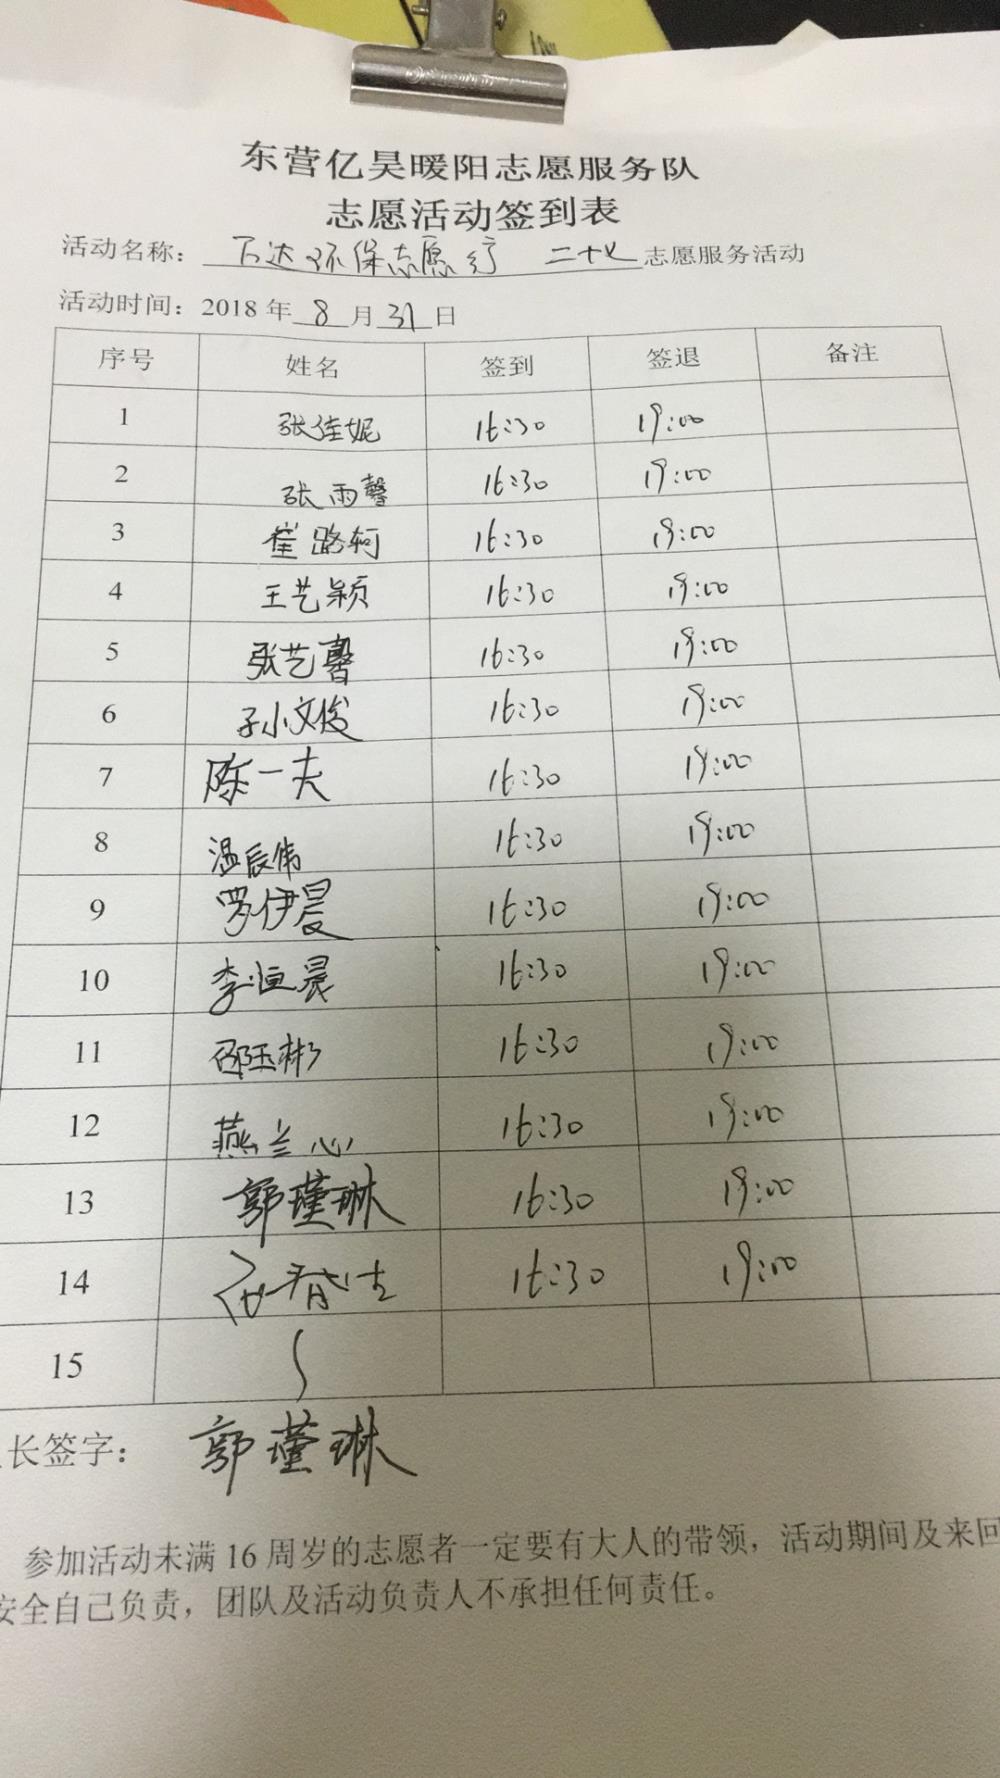 东营亿昊暖阳志愿服务队
志愿活动签到表
活动名称: 万达环保志愿行 二十七 志愿服务活动
活动时间: 2018 年 8 月 31 日
序号 姓名 签到 签退 备注
1 张佳妮 16:30 19:00
2 张雨馨 16:30 19:00
3 崔路轲 16:30 19:00
4 王艺颖 16:30 19:00
5 张艺馨 16:30 19:00
6 孙文俊 16:30 19:00
7 陈一夫 16:30 19:00
8 温辰伟 16:30 19:00
9 罗伊晨 16:30 19:00
10 李恒晨 16:30 19:00
11 邵玉彬 16:30 19:00
12 燕兰心 16:30 19:00
13 郭瑾琳 16:30 19:00
14 16:30 19:00
15
长签字: 郭瑾琳
参加活动未满 16 周岁的志愿者一定要有大人的带领，活动期间及来回
安全自己负责，团队及活动负责人不承担任何责任。